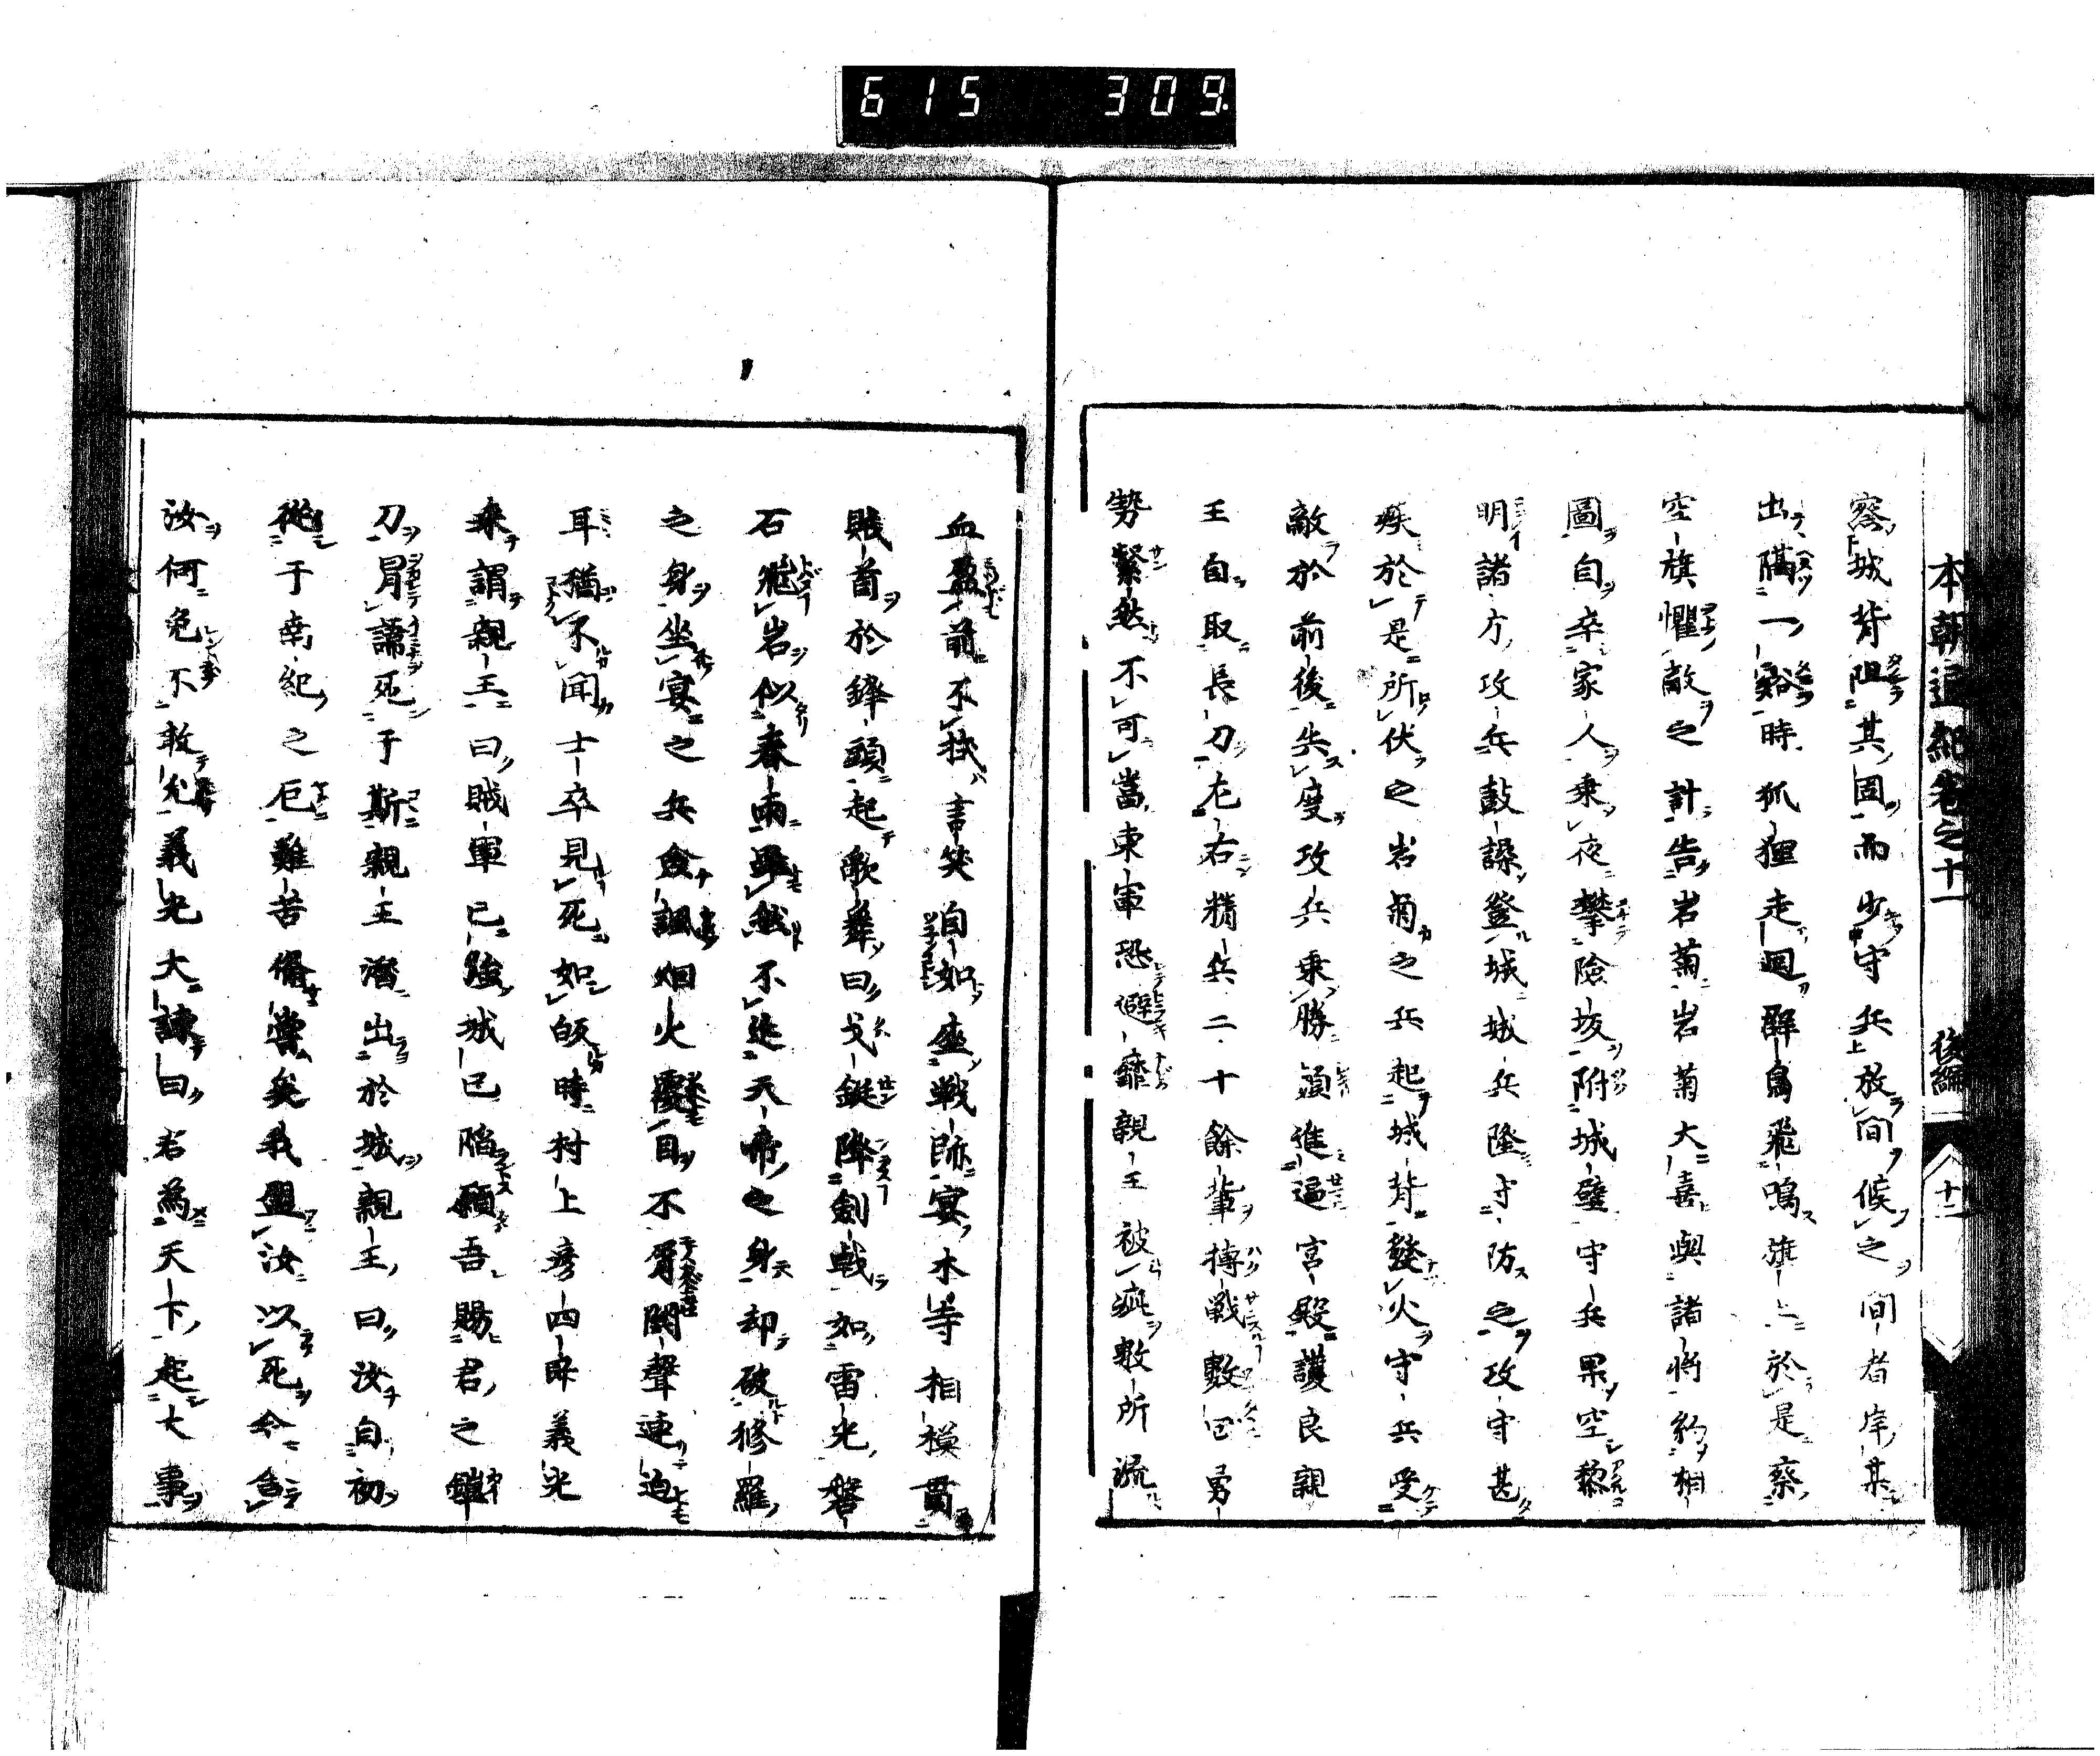 615 309
本朝通紀卷之十一 後編 十二
察城背阻其固而少守兵放間候之間者岸其
出隔一谿時狐狸走迴群鳥飛鳴旗上於是察
空旗懼敵之計告岩菊岩菊大喜與諸將約相
圖自卒家人乘夜攀險坂附城壁守兵果空黎
明諸方攻兵鼓譟登城城兵隆守防之攻守甚
疾於是所伏之岩菊之兵起城背發火守兵受
敵於前後失度攻兵乘勝須進逼宮殿護良親
王自取長刀左右精兵二十餘輩搏戰數回勇
勢繫然不可當東軍恐避靡親王被疵數所流
血盈前不抆言笑自如座戰師宴木寺相模貫
賊首於鋒頭起歌舞曰戈鋋降劍戟如雷光磐
石飛岩似春雨雖然不近天帝之身却破修羅
之身坐宴之兵僉諷烟火覆目不屑鬪聲連迫
耳猶不聞士卒見死如皈時村上彥四郎義光
來謂親王曰賊軍已強城已陷願吾賜君之鎧
刀冒諱死于斯親王潛出於城親王曰汝自初
從于南紀之巨難苦備嘗矣我盟汝以死今舍
汝何免不敢允義光大諫曰君為天下起大事